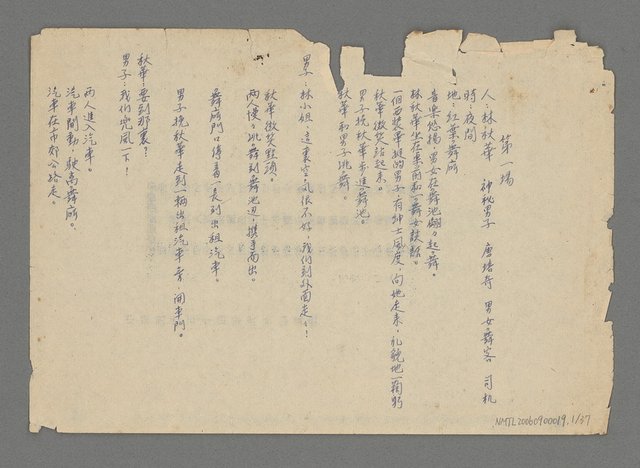 第一場
人：林秋華　神秘男子　唐培奇　男女舞客　司机
時：夜間
地：紅葉舞廳
音樂悠揚，男女在舞池翩々起舞。
林秋華坐在東前和一舞女談話。
一個西裝筆挺的男子有紳士風度，向她走來，礼貌地一鞠躬
秋華微笑站起來。
男子挽秋華步進舞池。
秋華和男子跳舞。
男子：林小姐，這裏空氣很不好，我们到外面走々！
秋華微笑點頭。
两人慢々跳舞到舞池边，携手而出。
舞廳門口停着一長列出租汽車。
男子挽秋華走到一輛出租汽車旁，開車門。
秋華：要到那裏？
男子：我们兜風一下！
两人進入汽車。
汽車開動，駛离舞廳。
汽車在市郊公路走。
NMTL20060900019.1/37